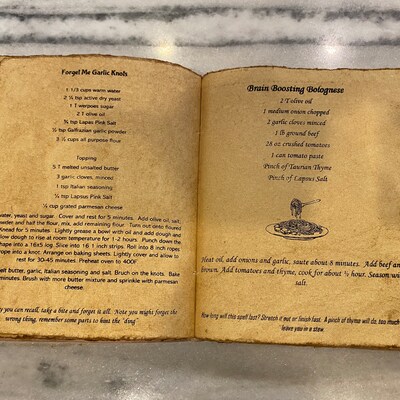 Forget Me Garlic Knots
1 1/3 cups warm water
2 ¼ tsp active dry yeast
1 T warpoes sugar
2 T olive oil
¾ tsp Lapus Pink Salt
½ tsp Galfrazian garlic powder
3 ½ cups all purpose flour
Topping
5 T melted unsalted butter
3 garlic cloves, minced
1 tsp Italian seasoning
¼ tsp Lapsus Pink Salt
¼ cup grated parmesan cheese
water, yeast and sugar. Cover and rest for 5 minutes. Add olive oil, salt,
powder and half the flour, mix, add remaining flour. Turn out onto floured
Knead for 5 minutes. Lightly grease a bowl with oil and add dough and
allow dough to rise at room temperature for 1-2 hours. Punch down the
shape into a 16x5 log. Slice into 16 1 inch strips. Roll into 8 inch ropes
rope into a knot. Arrange on baking sheets. Lightly cover and allow to
rest for 30-45 minutes. Preheat oven to 400F
melt butter, garlic, Italian seasoning and salt. Bruch on the knots. Bake
minutes. Brush with more butter mixture and sprinkle with parmesan
cheese.
you can recall, take a bite and forget it all. Now you might forget the
wrong thing, remember some parts to hint the "ding"
Brain Boosting Bolognese
2 T olive oil
1 medium onion chopped
2 garlic cloves minced
1 lb ground beef
28 oz crushed tomatoes
1 can tomato paste
Pinch of Taurian Thyme
Pinch of Lapsus Salt
Heat oil, add onions and garlic, saute about 8 minutes. Add beef and
brown. Add tomatoes and thyme, cook for about ½ hour. Season with
salt.
How long will this spell last? Stretch it out or finish fast. A pinch of thyme will do, too much
leave you in a stew.